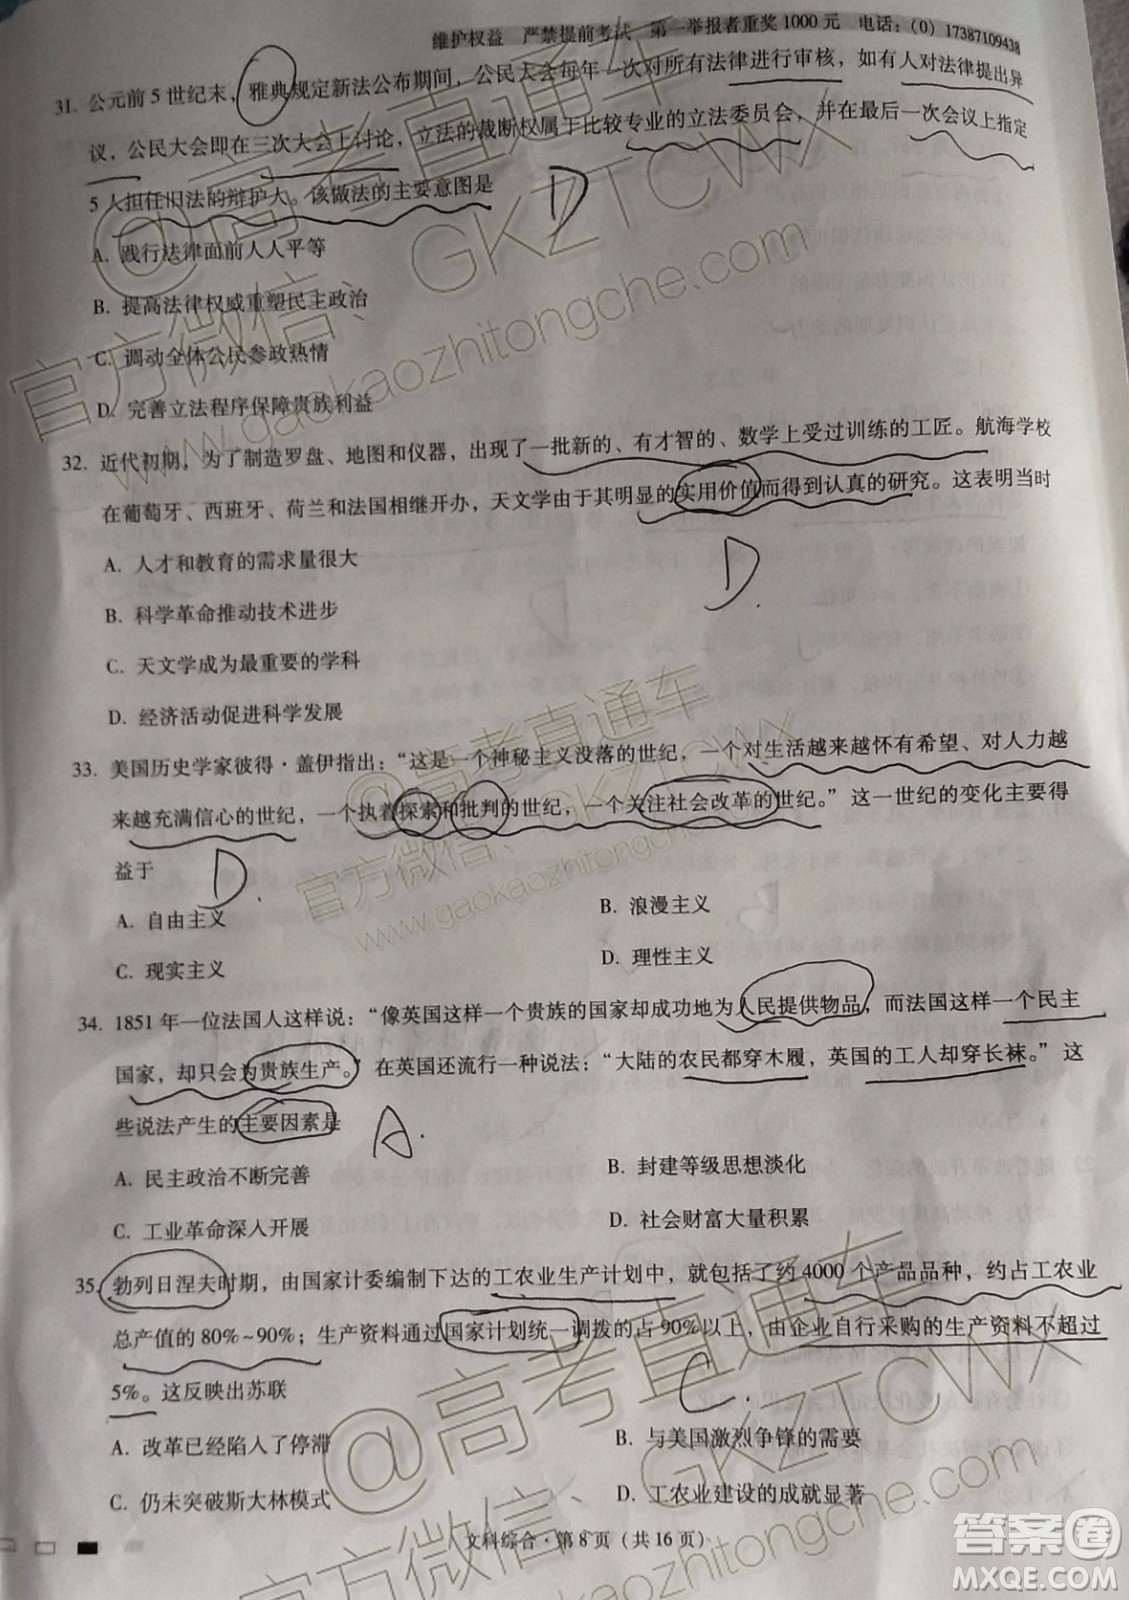 维护权益 严禁提前考试 第一举报者重奖1000元 电话：(0) 17387109438
31. 公元前5世纪末，雅典规定新法公布期间，公民大会每年一次对所有法律进行审核，如有人对法律提出异
议，公民大会即在三次大会上讨论，立法的裁断权属于比较专业的立法委员会，并在最后一次会议上指定
5人担任旧法的辩护人。该做法的主要意图是
D
A. 践行法律面前人人平等
B. 提高法律权威重塑民主政治
C. 调动全体公民参政热情
D. 完善立法程序保障贵族利益
32. 近代初期，为了制造罗盘、地图和仪器，出现了一批新的、有才智的、数学上受过训练的工匠。航海学校
在葡萄牙、西班牙、荷兰和法国相继开办，天文学由于其明显的实用价值而得到认真的研究。这表明当时
A. 人才和教育的需求量很大
D.
B. 科学革命推动技术进步
C. 天文学成为最重要的学科
D. 经济活动促进科学发展
33. 美国历史学家彼得·盖伊指出：“这是一个神秘主义没落的世纪，一个对生活越来越怀有希望、对人力越
来越充满信心的世纪，一个执着探索和批判的世纪，一个关注社会改革的世纪。”这一世纪的变化主要得
益于
D.
A. 自由主义 B. 浪漫主义
C. 现实主义 D. 理性主义
34. 1851年一位法国人这样说：“像英国这样一个贵族的国家却成功地为人民提供物品，而法国这样一个民主
国家，却只会为贵族生产。”在英国还流行一种说法：“大陆的农民都穿木履，英国的工人却穿长袜。”这
些说法产生的主要因素是
A.
A. 民主政治不断完善 B. 封建等级思想淡化
C. 工业革命深入开展 D. 社会财富大量积累
35. 勃列日涅夫时期，由国家计委编制下达的工农业生产计划中，就包括了约4000个产品品种，约占工农业
总产值的80%~90%；生产资料通过国家计划统一调拨的占90%以上，由企业自行采购的生产资料不超过
5%。这反映出苏联
C.
A. 改革已经陷入了停滞 B. 与美国激烈争锋的需要
C. 仍未突破斯大林模式 D. 工农业建设的成就显著
文科综合·第8页（共16页）
@高考直通车
官方微信：GKZTCWX
www.gaokaozhitongche.com
@高考直通车
官方微信：GKZTCWX
www.gaokaozhitongche.com
@高考直通车
官方微信：GKZTCWX
www.gaokaozhitongche.com
答案圈
MXQE.COM